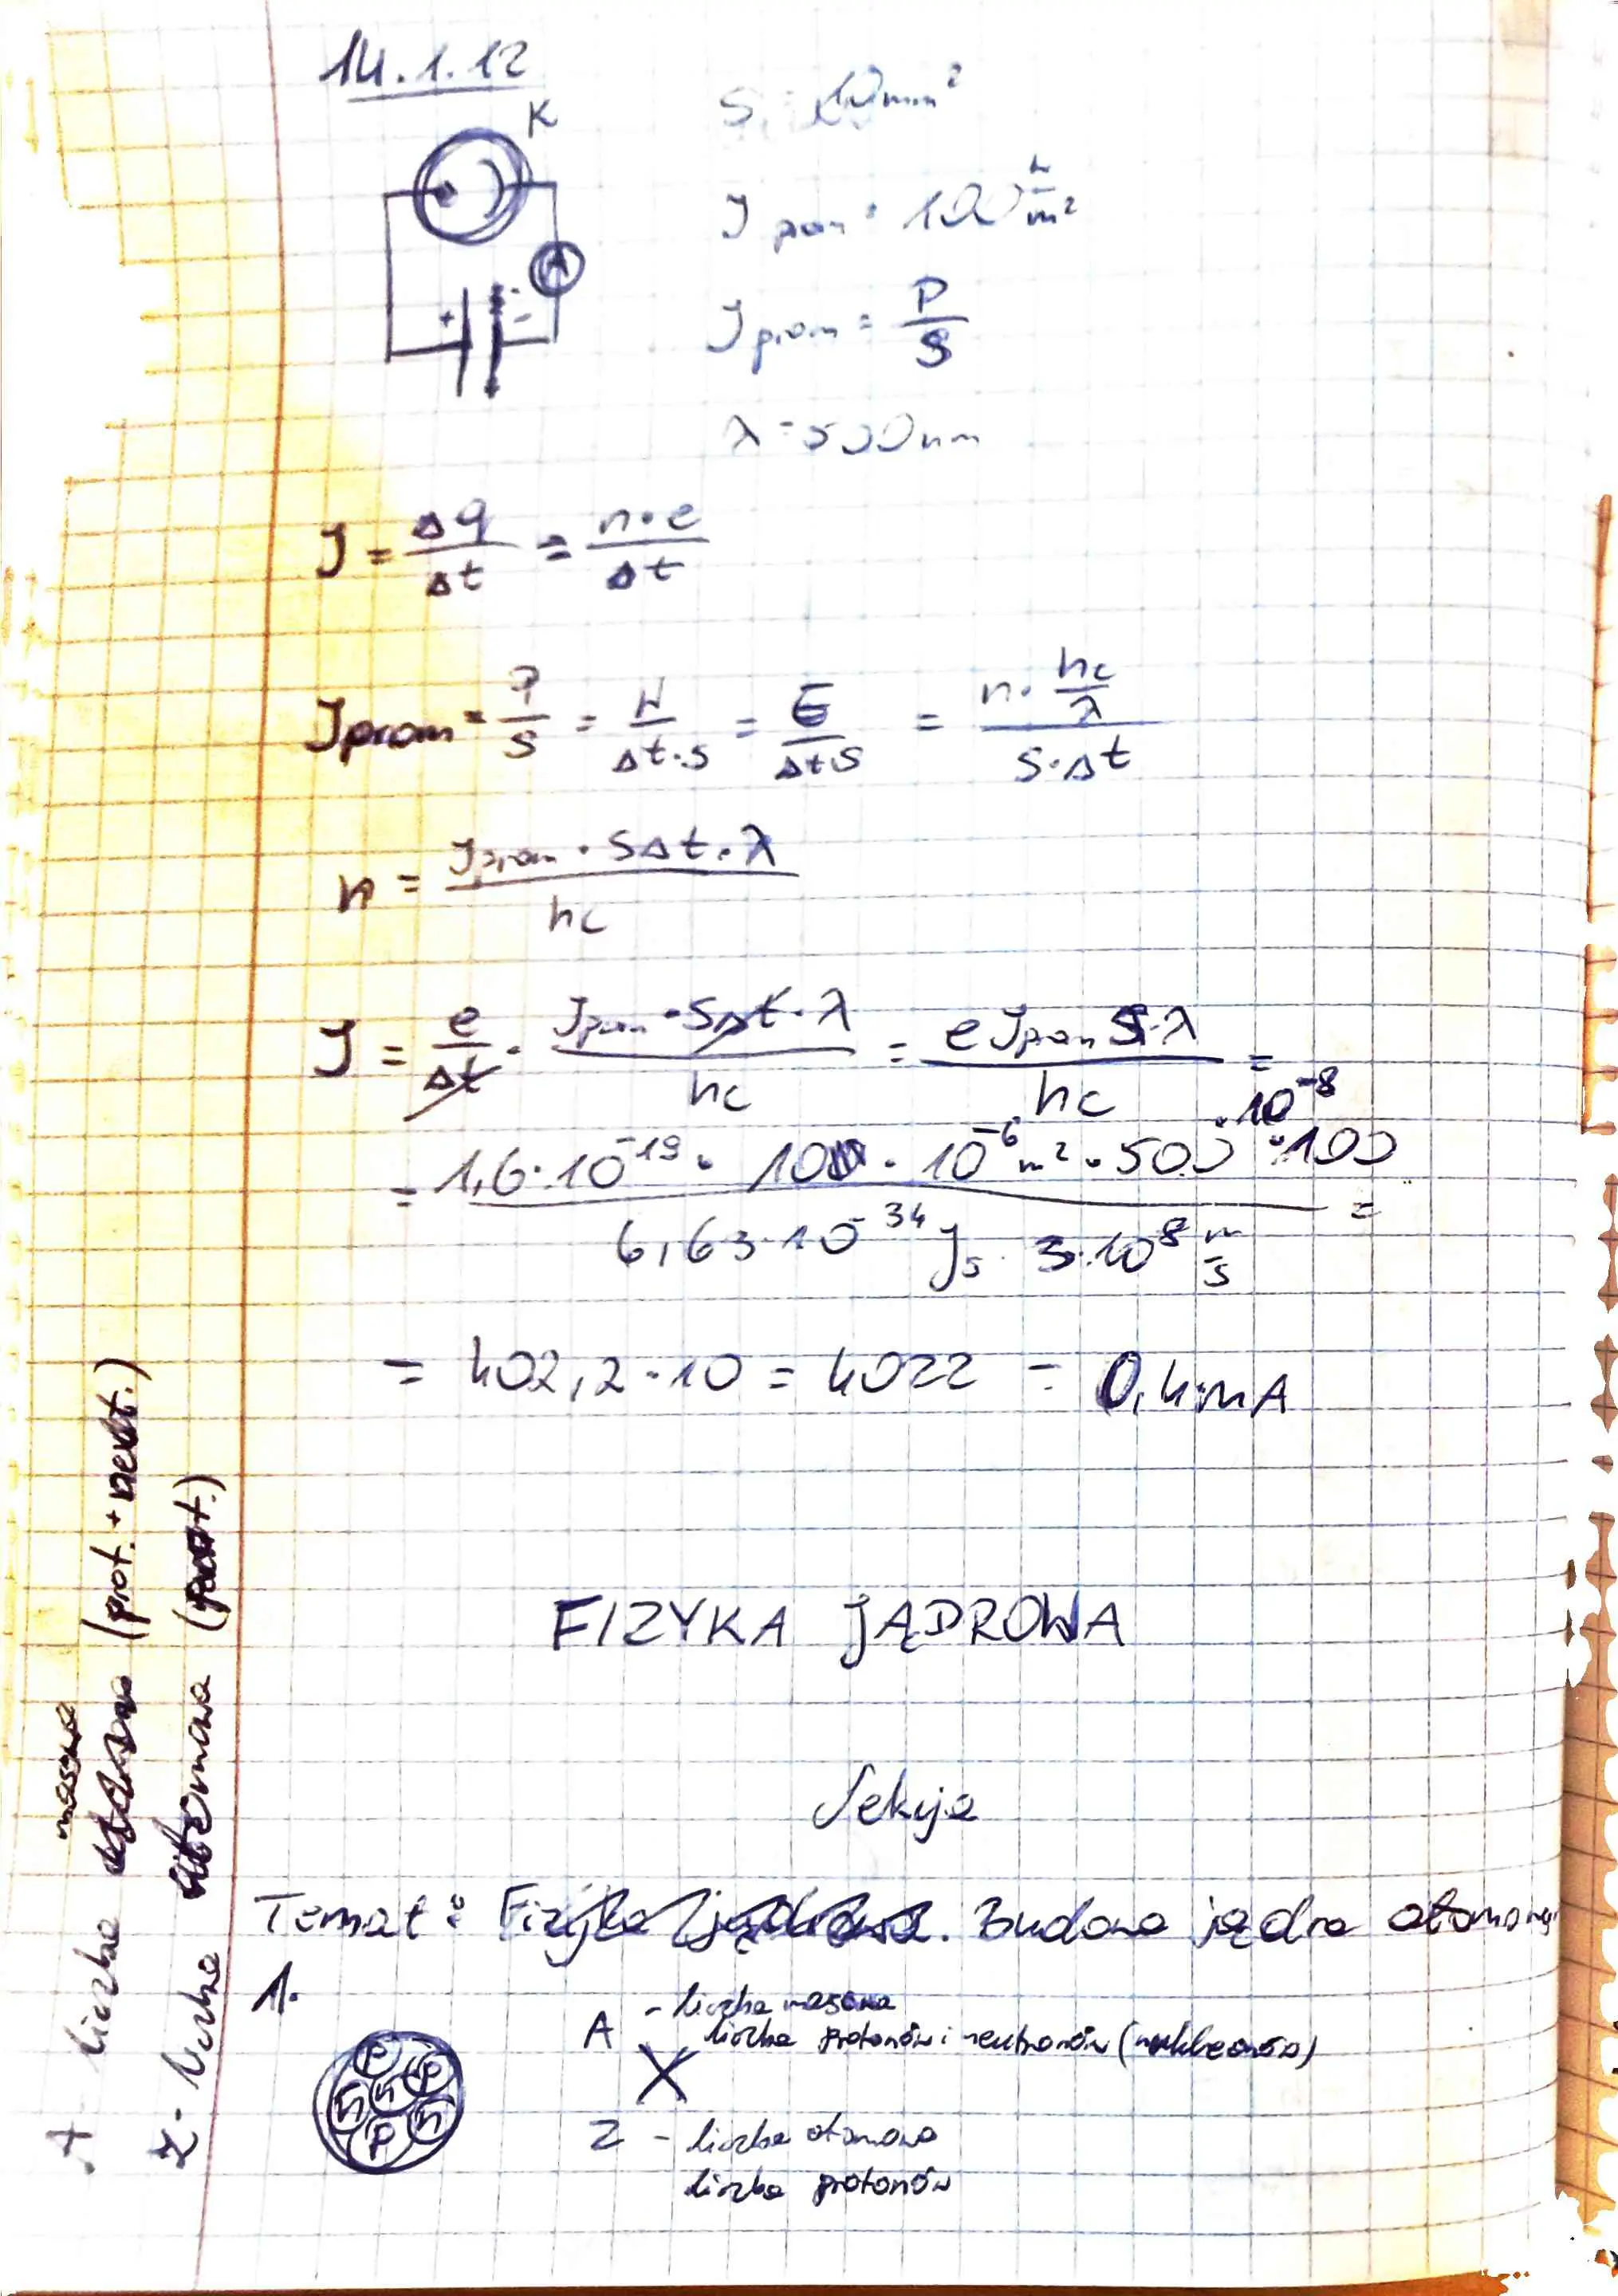 14.1.12
K
S = 10mm²
J prom = 100 W/m²
A
+ -
J prom = P/S
λ = 500nm
J = Δq/Δt = n·e/Δt
J prom = P/S = W/Δt·S = E/Δt·S = n·hc/λ / S·Δt
n = J prom · SΔt·λ / hc
J = e/Δt · J prom · SΔt·λ / hc = e J prom S·λ / hc =
= 1,6·10⁻¹⁹ · 10 · 10⁻⁶ m² · 500 · 10⁻⁸ · 100 / 6,63·10⁻³⁴ Js · 3·10⁸ m/s =
= 402,2·10 = 4022 = 0,4mA
FIZYKA JĄDROWA
Lekcja
Temat: Fizyka jądrowa. Budowa jądra atomowego
1.
A - liczba masowa
liczba protonów i neutronów (nukleonów)
X
Z - liczba atomowa
liczba protonów
P P n n n n P
masowa
A - liczba (prot. + neut.)
Z - liczba atomowa (prot.)